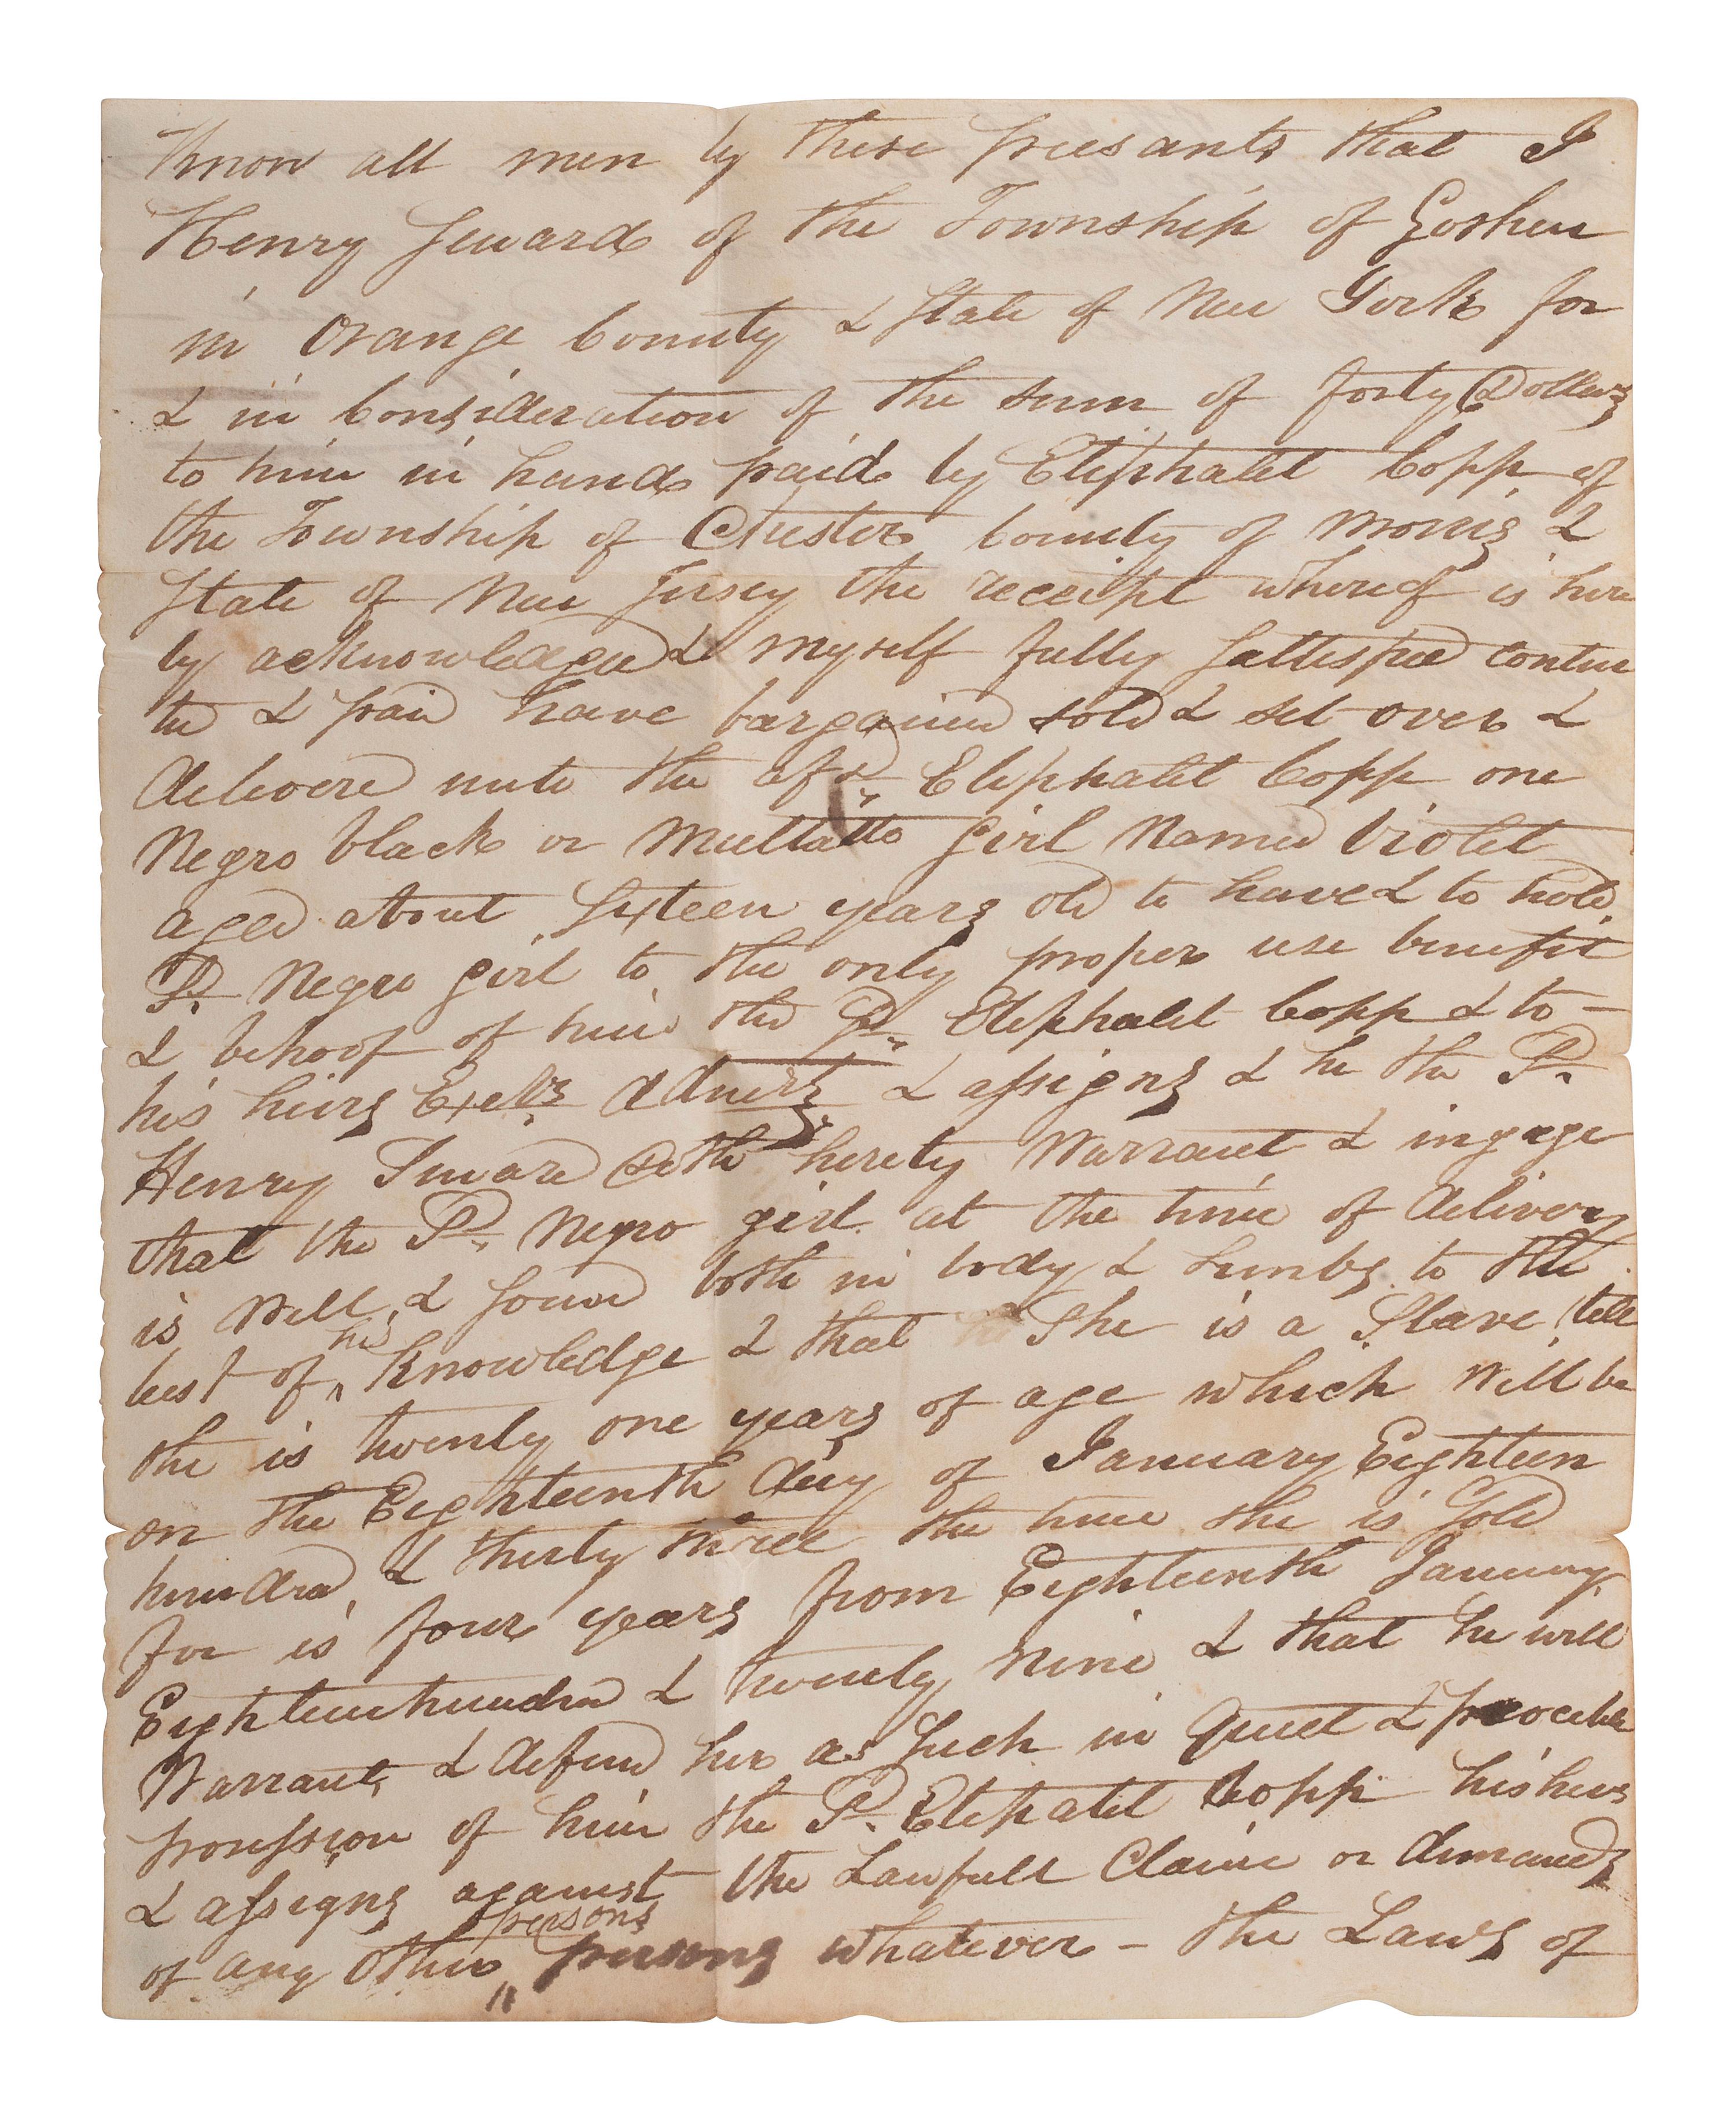 Know all men by these presants that I
Henry Seward of the Township of Goshen
in Orange County & State of New York for
& in Consideration of the sum of forty Dollars
to him in hand paid by Eliphalet Copp of
the Township of Chester County of Morris &
State of New Jersey the receipt whereof is here
by acknowledged & myself fully sattisfied conten
ted & paid have bargained sold & set over &
delivered unto the afsd. Eliphalet Copp one
Negro black or Mullatto Girl Named Violet
aged about Sixteen years old to have & to hold
Sd. Negro girl to the only proper use benefit
& behoof of him the Sd. Eliphalet Copp & to -
his heirs Exetrs. Admirs. & assigns & he the Sd.
Henry Seward doth hereby Warrant & ingage
that the Sd. Negro girl at the time of delivery
is Well & sound both in body & Limbs to the
best of his knowledge & that She is a Slave till
she is twenty one years of age which Will be
on the Eighteenth day of January Eighteen
hundred & thirty three the time she is Sold
for is four years from Eighteenth January
Eighteenhundred & twenty nine & that he will
Warrant & defend her as Such in Quiet & peaceable
possession of him the Sd. Eliphalet Copp his heirs
& assigns against the Lawfull Claim or demands
of any Other persons whatever - the Laws of